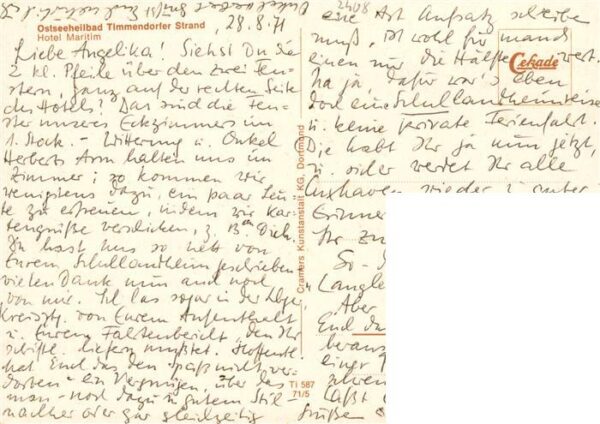 Ostseeheilbad Timmendorfer Strand
Hotel Maritim
28.8.71
Liebe Angelika! Siehst Du die
2 kl. Pfeile über den zwei Fen-
stern, ganz auf der rechten Seite
des Hotels? Das sind die Fen-
ster unseres Eckzimmers im
1. Stock. - Witterung u. Onkel
Herberts Arm halten uns im
Zimmer; so kommen wir
wenigstens dazu, ein paar Leu-
te zu erfreuen, indem wir Kar-
tengrüße verschicken, z. B. Dich.
Du hast uns so nett von
Eurem Schullandheim geschrieben
vielen Dank nun auch noch
von mir. Ich las sogar in der
Kreisztg. von Eurem Aufenthalt
u. Eurem Fahrtenbericht, den Ihr
schriftl. liefern mußtet. Hoffentl.
hat Euch das den Spaß nicht ver-
dorben - ein Vergnügen, über das
man - noch dazu in gutem Stil -
nachher oder gar gleichzeitig
2408
eine Art Aufsatz schreiben
muß, ist wohl für manch
einen nur die Hälfte wert.
Na ja, dafür war's eben
doch eine Schullandheimreise
u. keine private Ferienfahrt.
Die habt Ihr ja nun jetzt,
u. sicher werdet Ihr alle
Cuxhaven wieder
Ihr
So
Aber
Euch
einer
laßt
Grüßen
Cekade
Cramers Kunstanstalt KG, Dortmund
Ti 587
71/5